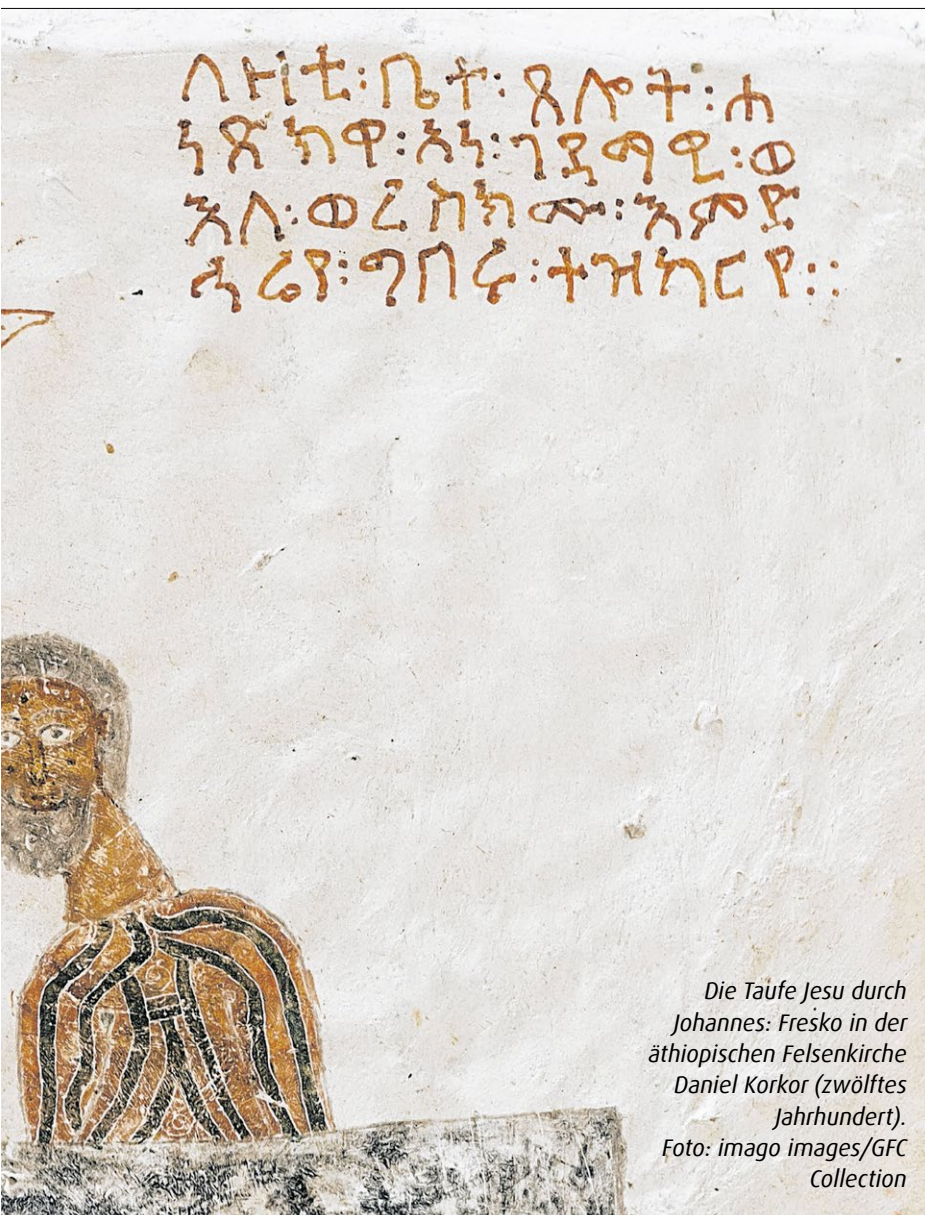 ለዛቲ፡ቤተ፡ጸሎት፡ሐ
ነጽክዋ፡አነ፡ገዳማዊ፡ወ
እለ፡ወረስክሙ፡እምድ
ኅሬየ፡ግበሩ፡ተዝካርየ።
Die Taufe Jesu durch
Johannes: Fresko in der
äthiopischen Felsenkirche
Daniel Korkor (zwölftes
Jahrhundert).
Foto: imago images/GFC
Collection